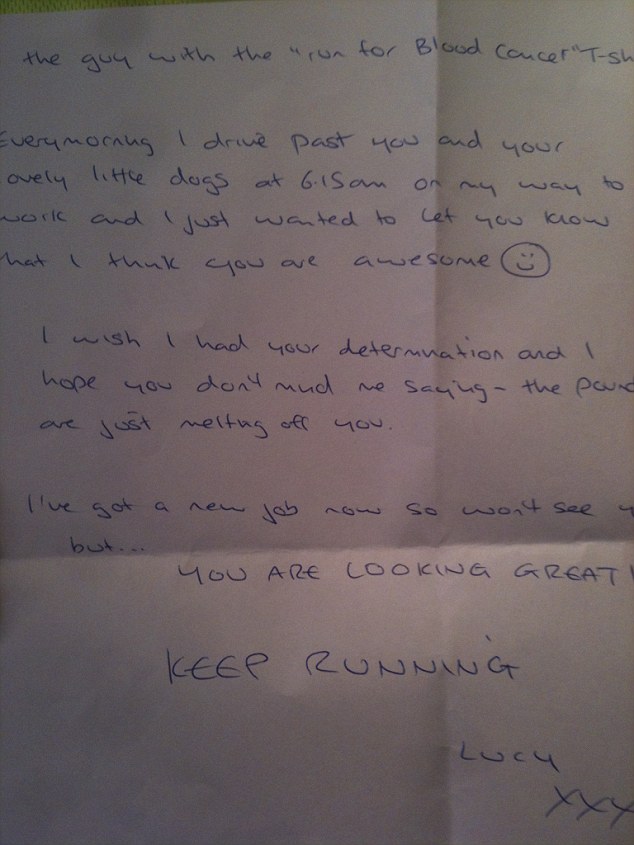 the guy with the "run for Blood Cancer" T-sh
Everymorning I drive past you and your
ovely little dogs at 6.15am on my way to
work and I just wanted to let you know
hat I think you are awesome ☺
I wish I had your determination and I
hope you don't mind me saying - the pound
are just melting off you.
I've got a new job now so won't see y
but...
YOU ARE LOOKING GREAT!
KEEP RUNNING
LUCY
XXX